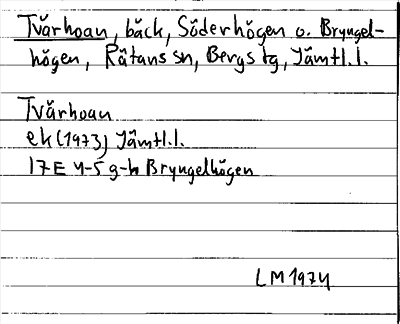 Tvärhoan, bäck, Söderhögen o. Bryngel-
högen, Råtans sn, Bergs tg, Jämtl.l.
Tvärhoan
ek (1973) Jämtl.l.
17E 4-5 g-h Bryngelhögen
LM 1974